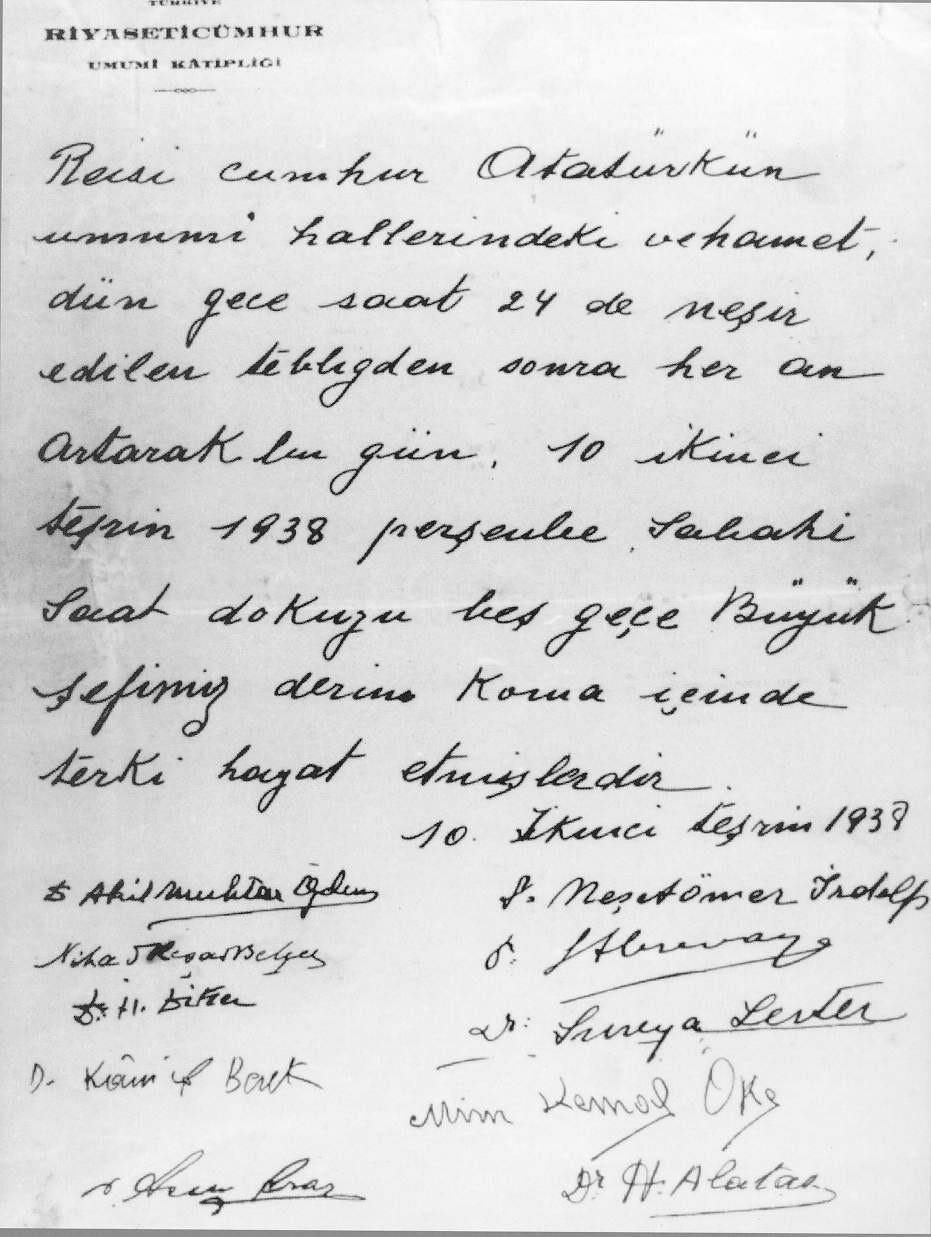 TÜRKİYE
RİYASETİCÜMHUR
UMUMÎ KÂTİPLİĞİ
Reisi cumhur Atatürkün
umumi hallerindeki vehamet,
dün gece saat 24 de neşir
edilen tebligden sonra her an
artarak bu gün, 10 ikinci
teşrin 1938 perşenbe sabahi
Saat dokuzu beş geçe Büyük
şefimiz derin Koma içinde
terki hayat etmişlerdir.
10. İkinci teşrin 1938
Dr Akil Muhtar Özden
Dr. Neşet Ömer İrdelp
Nihad Reşad Belger
Dr.
Dr. H.
Dr: Sureya
D. Kâmil Berk
Mim Kemal Öke
Dr
Dr H. Alataş